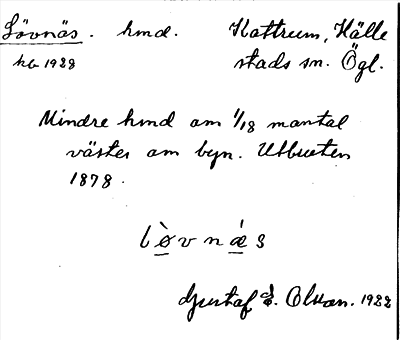 Lövnäs. hmd. Kattrum, Hälle
kb 1928 stads sn. Ögl.
Mindre hmd om 1/18 mantal
väster om byn. Utbruten
1878.
lòvnás
Gustaf E. Olson. 1922